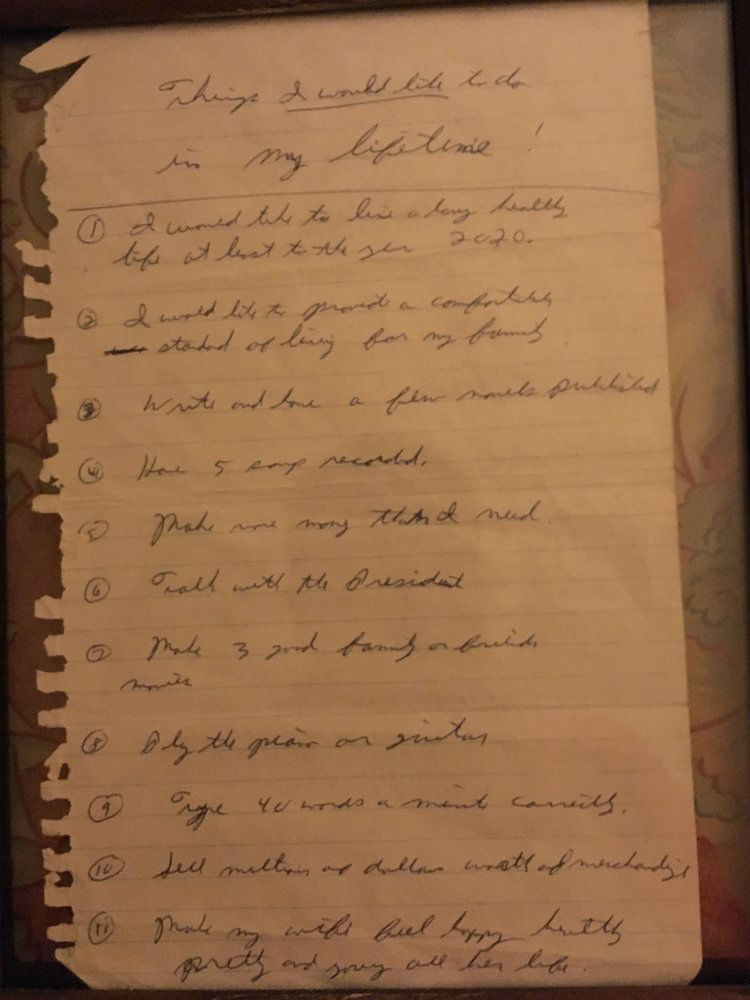 Things I would like to do
in my lifetime!
1 I would like to live a long healthy
life at least to the year 2020.
2 I would like to provide a comfortable
standard of living for my family
3 Write and have a few novels published
4 Have 5 songs recorded.
5 Make more money than I need.
6 Talk with the President
7 Make 3 good family or friends
movies
8 Play the piano or guitar
9 Type 40 words a minute correctly.
10 Sell millions of dollars worth of merchandize
11 Make my wife feel happy healthy
pretty and young all her life.